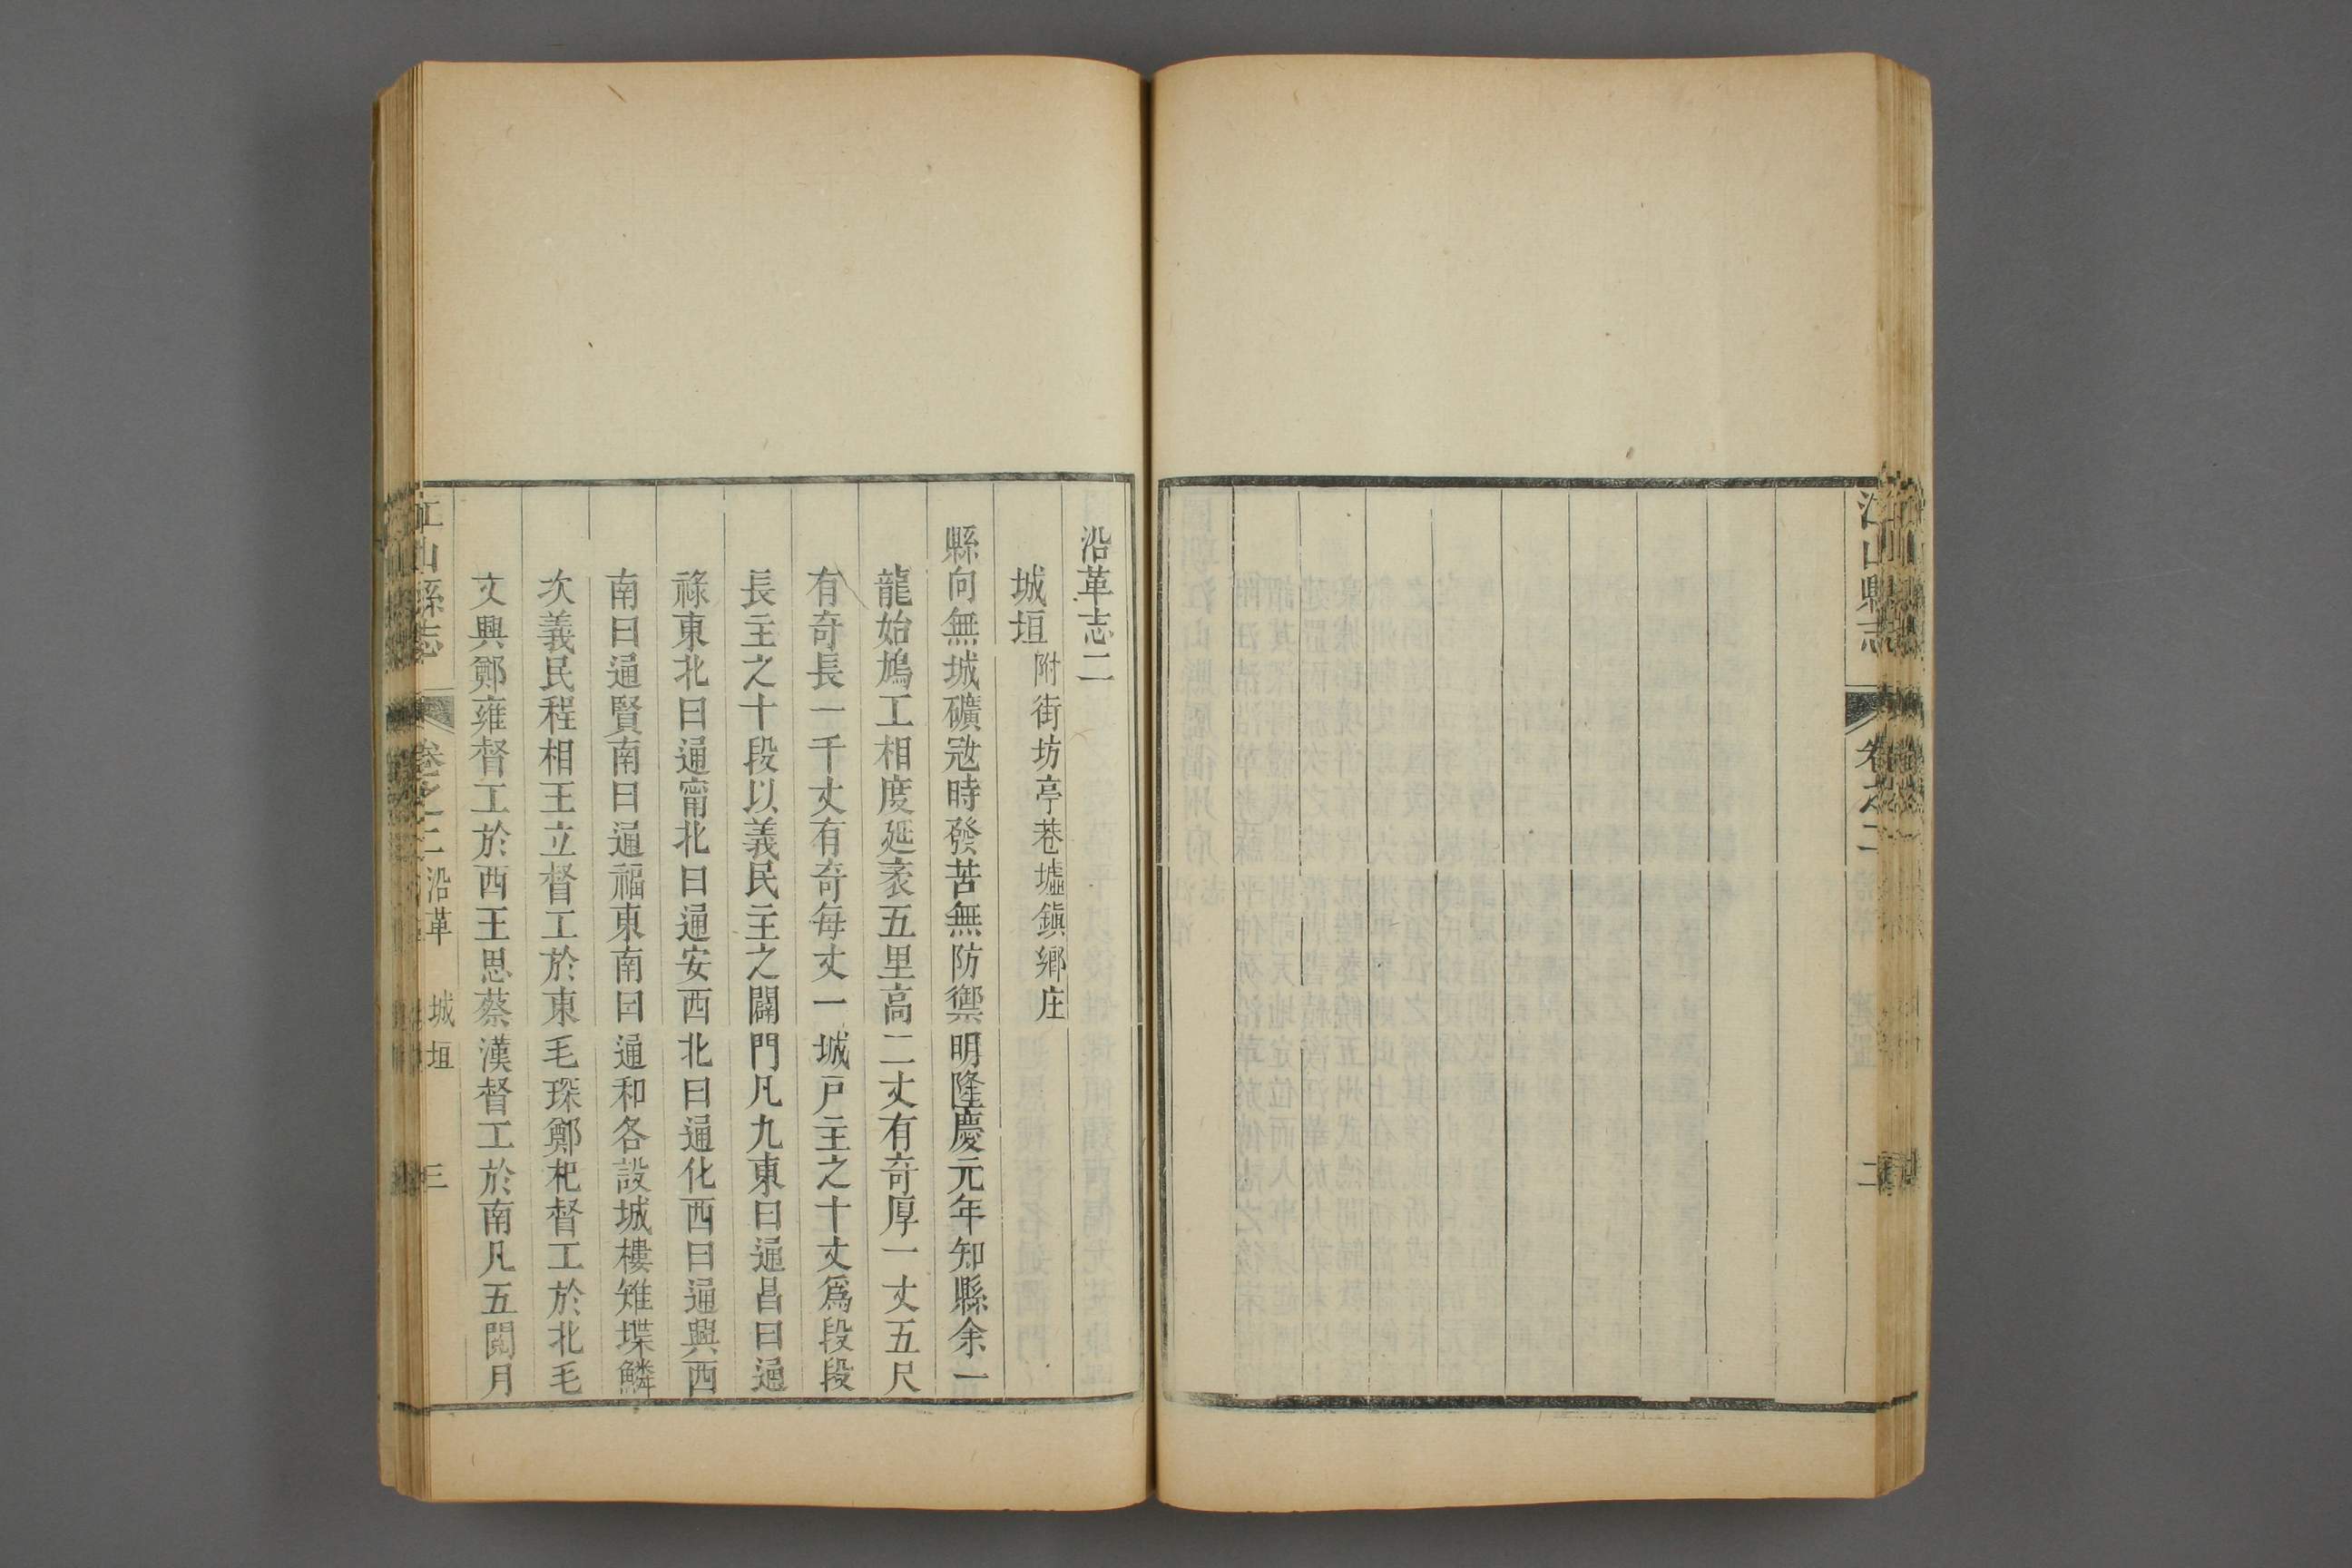 江山縣志
卷之二
二
沿革志二
城垣 附街坊亭巷墟鎮鄉庄
縣向無城礦寇時發苦無防禦明隆慶元年知縣余一
龍始鳩工相度延袤五里高二丈有奇厚一丈五尺
有奇長一千丈有奇每丈一城戸主之十丈爲段段
長主之十段以義民主之闢門凡九東曰通昌曰通
祿東北曰通甯北曰通安西北曰通化西曰通興西
南曰通賢南曰通福東南曰通和各設城樓雉堞鱗
次義民程相王立督工於東毛琛鄭杞督工於北毛
文興鄭雍督工於西王思蔡漢督工於南凡五閱月
江山縣志
卷之二 沿革 城垣 三